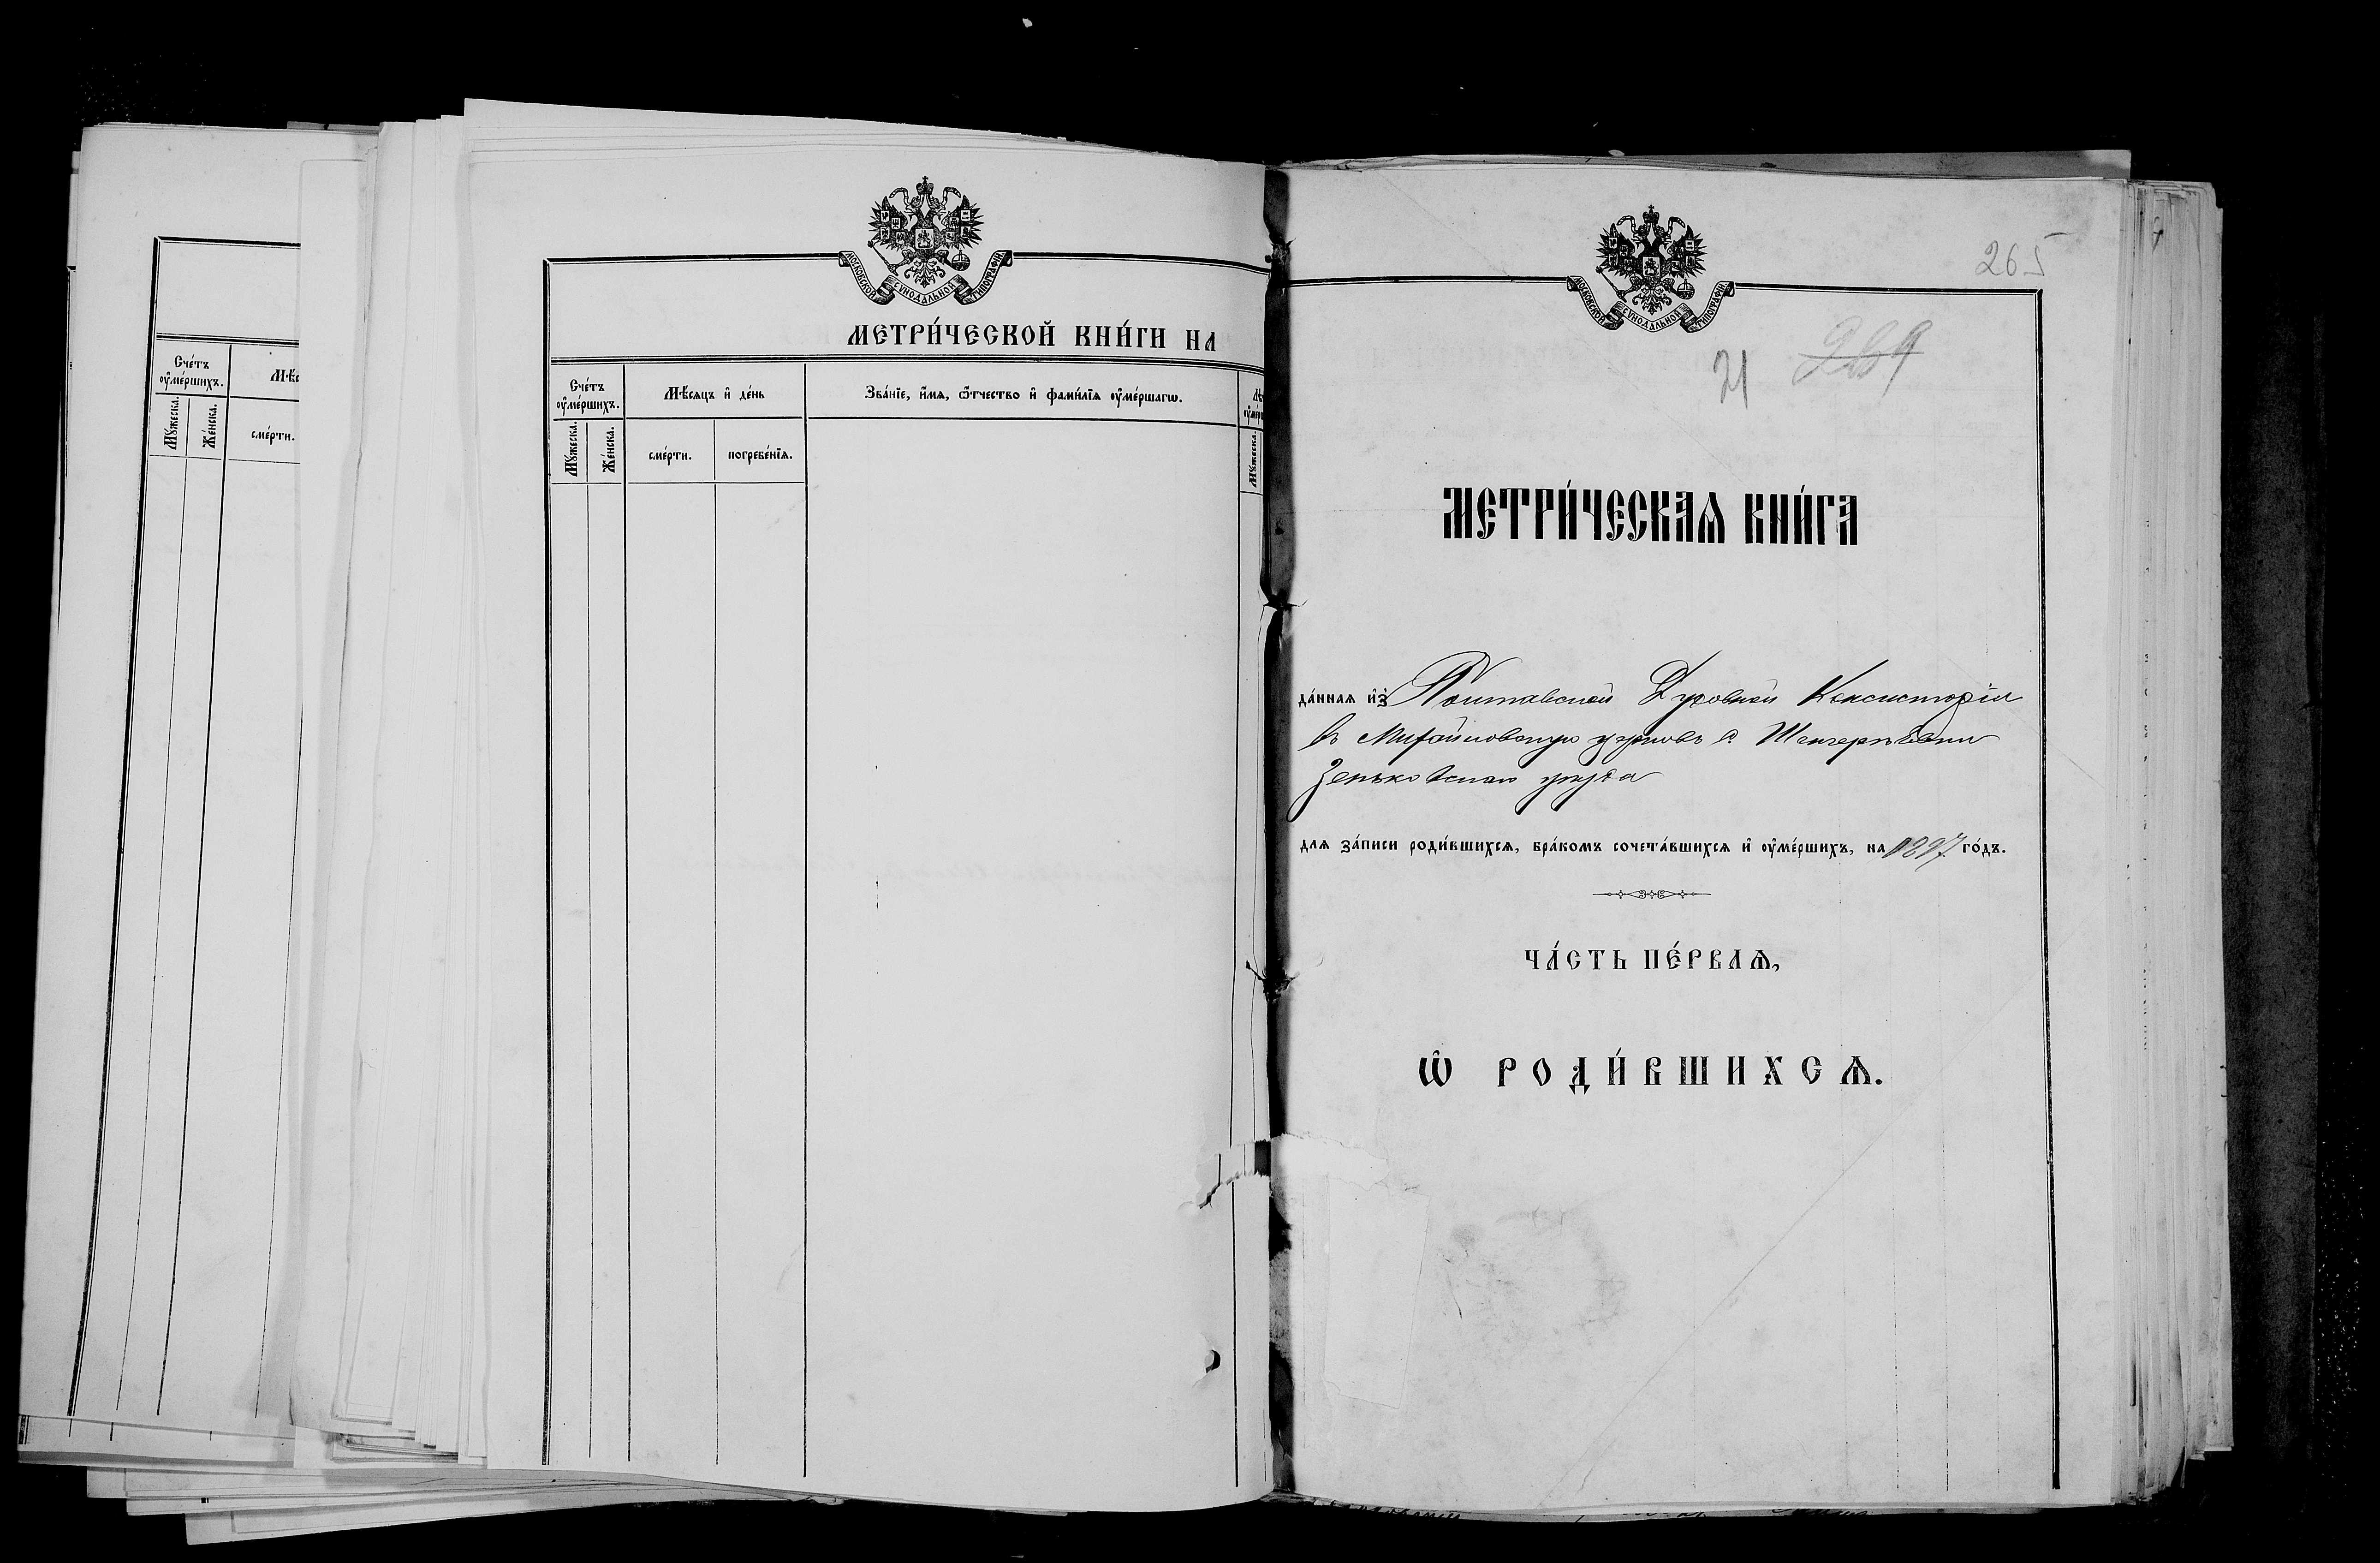 Сче́тъ оу҆ме́ршихъ.
Мѣс
Мꙋ́жеска.
Же́нска.
сме́рти.
МОСКОВСКОЙ СѴНОДАЛЬНОЙ ТИПОГРАФІИ
МЕТРИ́ЧЕСКОЙ КНИ́ГИ НА
Сче́тъ оу҆ме́ршихъ.
Мѣ́сяцъ и҆ де́нь
Зва́нїе, и҆́мѧ, ѻ҆́тчество и҆ фами́лїѧ оу҆ме́ршагѡ.
Мꙋ́жеска.
Же́нска.
сме́рти.
погребе́нїѧ.
Мꙋ́жеска.
265
МОСКОВСКОЙ СѴНОДАЛЬНОЙ ТИПОГРАФІИ
21
МЕТРИ́ЧЕСКАѦ КНИ́ГА
да́ннаѧ и҆з̾ Полтавской Духовной Консисторіи
въ Михайловскую церковь с.
Зеньковскаго уѣзда
длѧ за́писи роди́вшихсѧ, бра́комъ сочета́вшихсѧ и҆ оу҆ме́ршихъ, на 1897 го́дъ.
ЧА́СТЬ ПЕ́РВАѦ,
Ѡ҆ РОДИ́ВШИХСѦ.